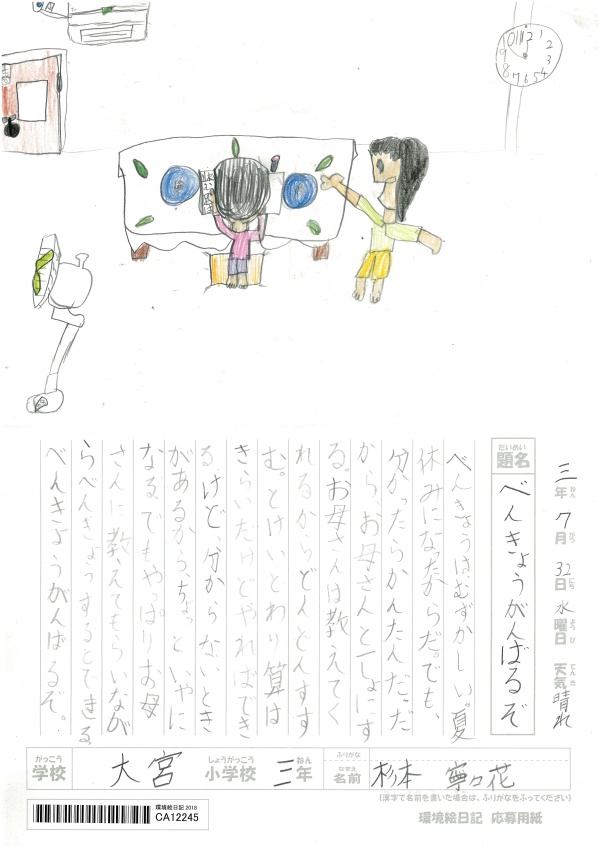 10 11 12 1 2 3 4 5 6 7 8 9
三年 7月 32日 水曜日 天気 晴れ
ねん がつ にち ようび てんき
だいめい
題名 べんきょうがんばるぞ
べんきょうは、むずかしい。夏
休みになったからだ。でも、
分かったらかんたんだ。だ
から、お母さんと一しょにす
る。お母さんは教えてく
れるからどんどんすす
む。とけいとわり算は
きらいだけどやればでき
る。けど、分からないとき
があるから、ちょっといやに
なる。でもやっぱりお母
さんに教えてもらいなが
らべんきょうするとできる。
べんきょうがんばるぞ。
がっこう しょうがっこう ねん ふりがな
学校 大宮 小学校 三年 なまえ 名前 杉本 寧々花
(漢字で名前を書いた場合は、ふりがなをふってください)
環境絵日記2018
CA12245
環境絵日記 応募用紙